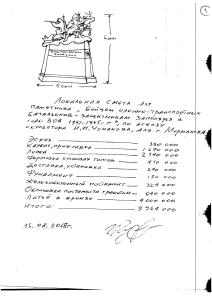 5000
Локальная смета для
памятника "Бойцам оленно-транспортных
батальонов - защитникам Заполярья в
годы ВОВ 1941-1945 г.г.", по эскизу
скульптора И.И. Чумакова, для г. Мурманска
Эскиз 350 000
Каркас, прокладка 1 690 000
Лепка 2 390 000
Формовка 410 000
Доставка, установка 240 000
Фундамент 150 000
Железобетонный постамент 324 000
Облицовка постамента гранитом 640 000
Литьё в бронзе 4 000 000
Итого: 9 964 000